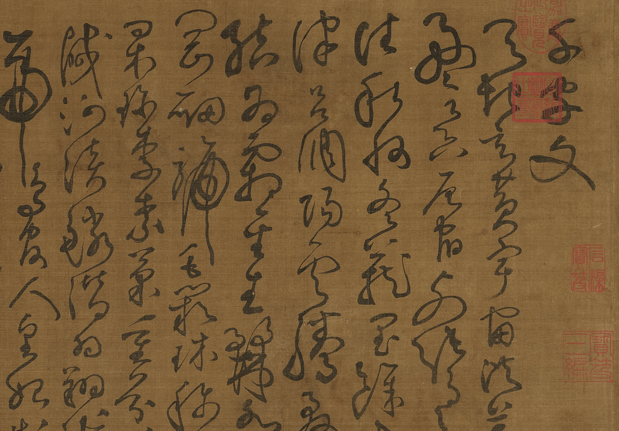 千字文
天地玄黃宇宙洪荒
盈昃辰宿列張寒
往秋收冬藏閏餘
律呂調陽雲騰致
結為霜金生麗水
岡劍號巨闕珠稱
果珍李柰菜重芥
鹹河淡鱗潛羽翔
帝鳥官人皇始制